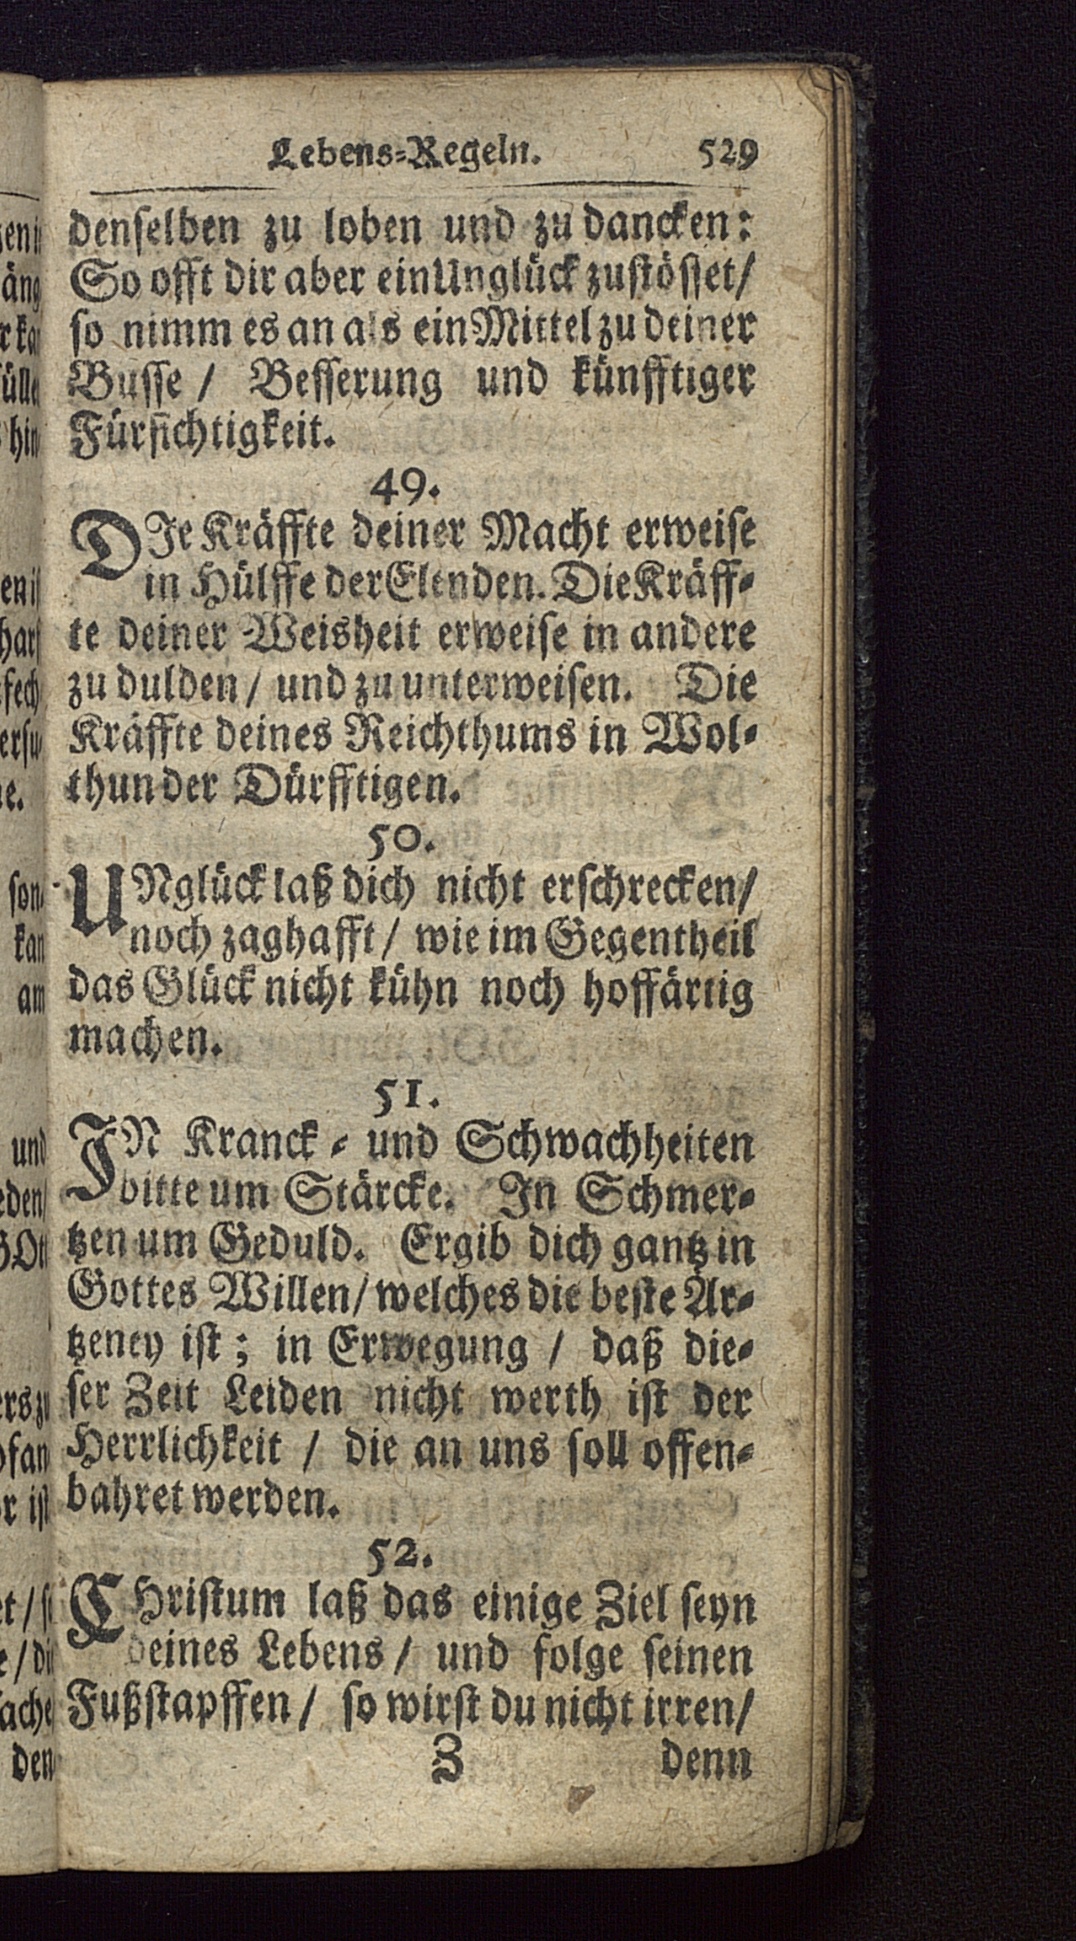 Lebens-Regeln. 529
denselben zu loben und zu dancken:
So offt dir aber ein Unglück zustösset/
so nimm es an als ein Mittel zu deiner
Busse / Besserung und künfftiger
Fürsichtigkeit.
49.
DIe Kräffte deiner Macht erweise
in Hülffe der Elenden. Die Kräff-
te deiner Weisheit erweise in andere
zu dulden / und zu unterweisen. Die
Kräffte deines Reichthums in Wol-
thun der Dürfftigen.
50.
UNglück laß dich nicht erschrecken/
noch zaghafft / wie im Gegentheil
das Glück nicht kühn noch hoffärtig
machen.
51.
IN Kranck- und Schwachheiten
bitte um Stärcke. In Schmer-
tzen um Geduld. Ergib dich gantz in
Gottes Willen/ welches die beste Ar-
tzeney ist; in Erwegung / daß die-
ser Zeit Leiden nicht werth ist der
Herrlichkeit / die an uns soll offen-
bahret werden.
52.
CHristum laß das einige Ziel seyn
deines Lebens / und folge seinen
Fußstapffen / so wirst du nicht irren/
Z denn